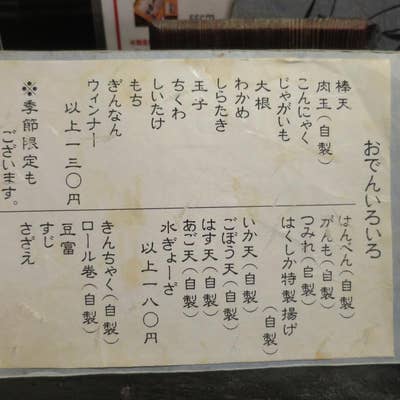 おでんいろいろ
棒天
肉玉(自製)
こんにゃく
じゃがいも
大根
わかめ
しらたき
玉子
ちくわ
しいたけ
もち
ぎんなん
ウィンナー
以上一三〇円
※季節限定も
ございます。
はんぺん(自製)
がんも(自製)
つみれ(自製)
はくしか特製揚げ
(自製)
いか天(自製)
ごぼう天(自製)
はす天(自製)
あご天(自製)
水ぎょーざ
以上一八〇円
きんちゃく(自製)
ロール巻(自製)
豆富
すじ
さざえ